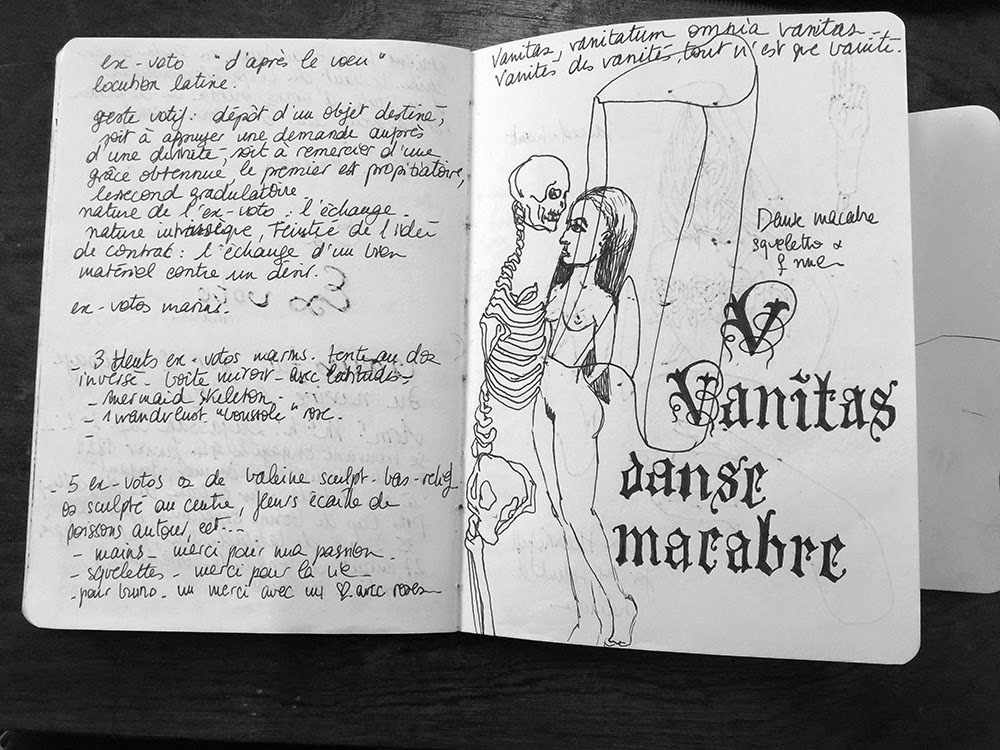 ex-voto "d'après le vœu"
locution latine.
geste votif: dépôt d'un objet destiné,
soit à appuyer une demande auprès
d'une divinité, soit à remercier d'une
grâce obtenue, le premier est propitiatoire,
le second gradulatoire.
nature de l'ex-voto: l'échange.
nature teintée de l'idée
de contrat: l'échange d'un bien
matériel contre un désir.
ex-votos marins.
- 3 ex-votos marins. au dos
inverse - boîte miroir - avec latitudes -
- mermaid skeleton -
- 1 wanderlust "boussole" rose -
-
- 5 ex-votos os de baleine sculpt. bas-relief
os sculpté au centre, fleurs écaille de
poissons autour, ect...
- mains - merci pour ma passion.
- squelettes - merci pour la vie -
- pour bruno - un merci avec un ♡ avec roses
Vanitas, vanitatum omnia vanitas -
vanités des vanités, tout n'est que vanité.
Danse macabre
squeletto &
f nue
V
Vanitas
danse
macabre